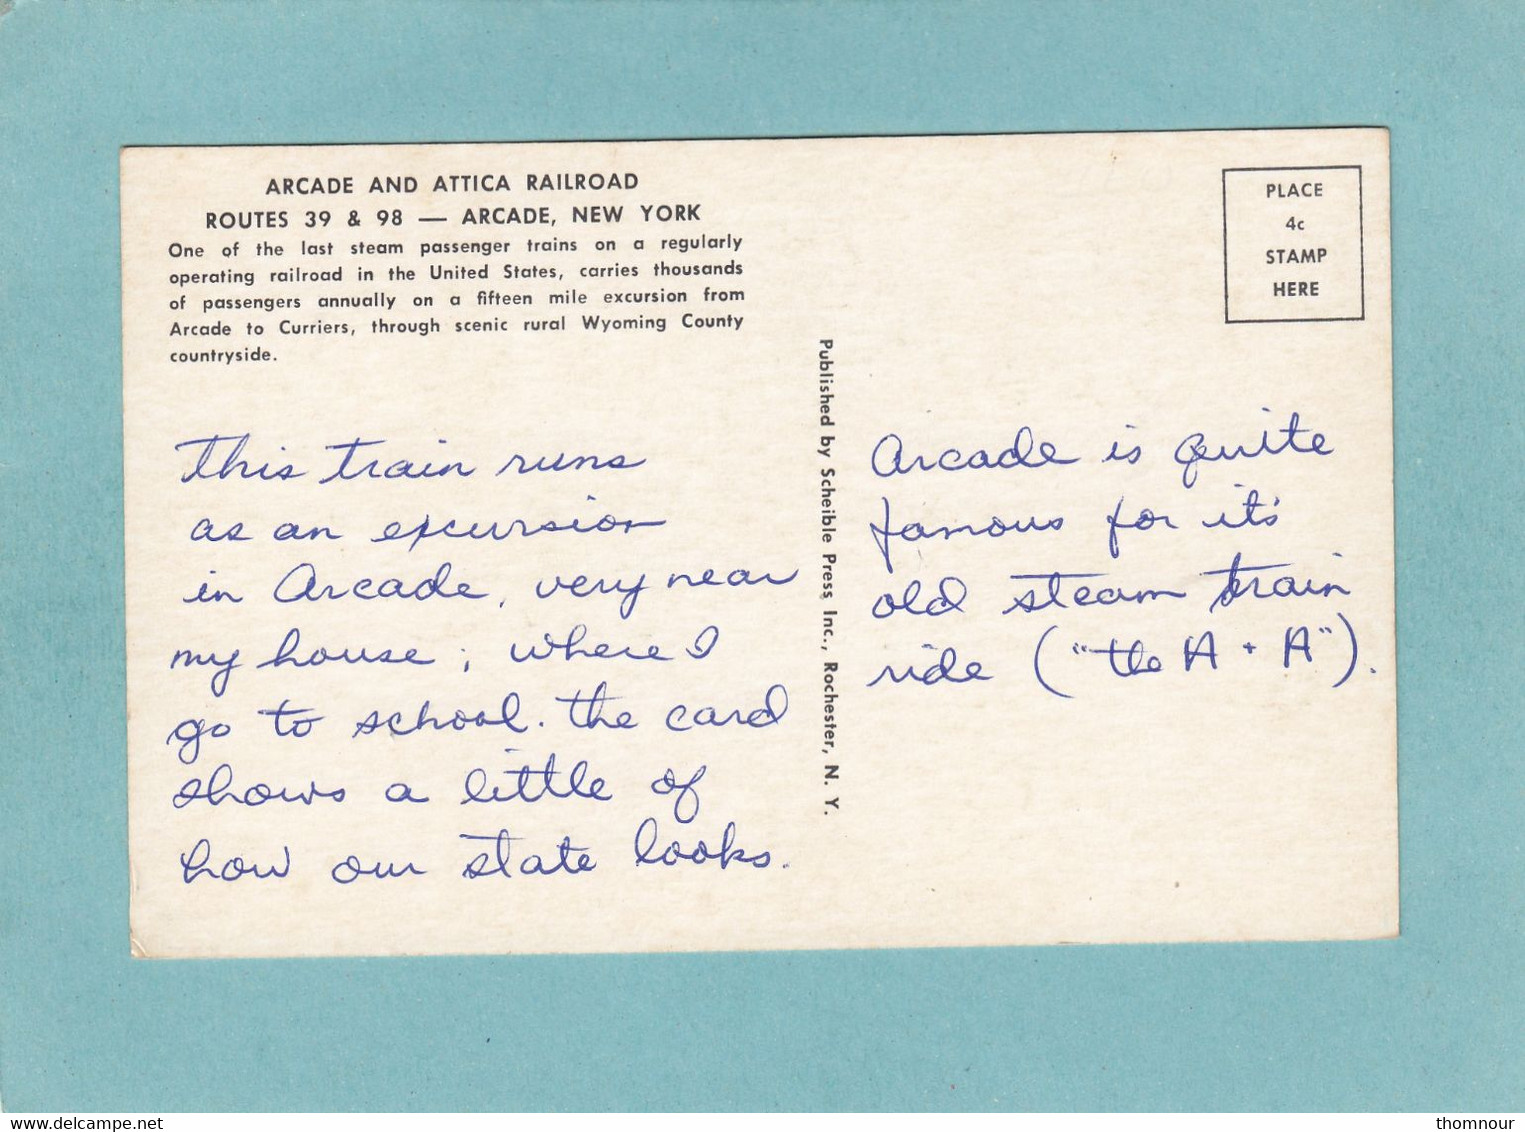 ARCADE AND ATTICA RAILROAD
ROUTES 39 & 98 — ARCADE, NEW YORK
One of the last steam passenger trains on a regularly
operating railroad in the United States, carries thousands
of passengers annually on a fifteen mile excursion from
Arcade to Curriers, through scenic rural Wyoming County
countryside.
This train runs
as an excursion
in Arcade, very near
my house; where I
go to school. The card
shows a little of
how our state looks.
Published by Scheible Press Inc., Rochester, N. Y.
PLACE
4c
STAMP
HERE
Arcade is quite
famous for it's
old steam train
ride ("the A + A").
www.delcampe.net
thomnour